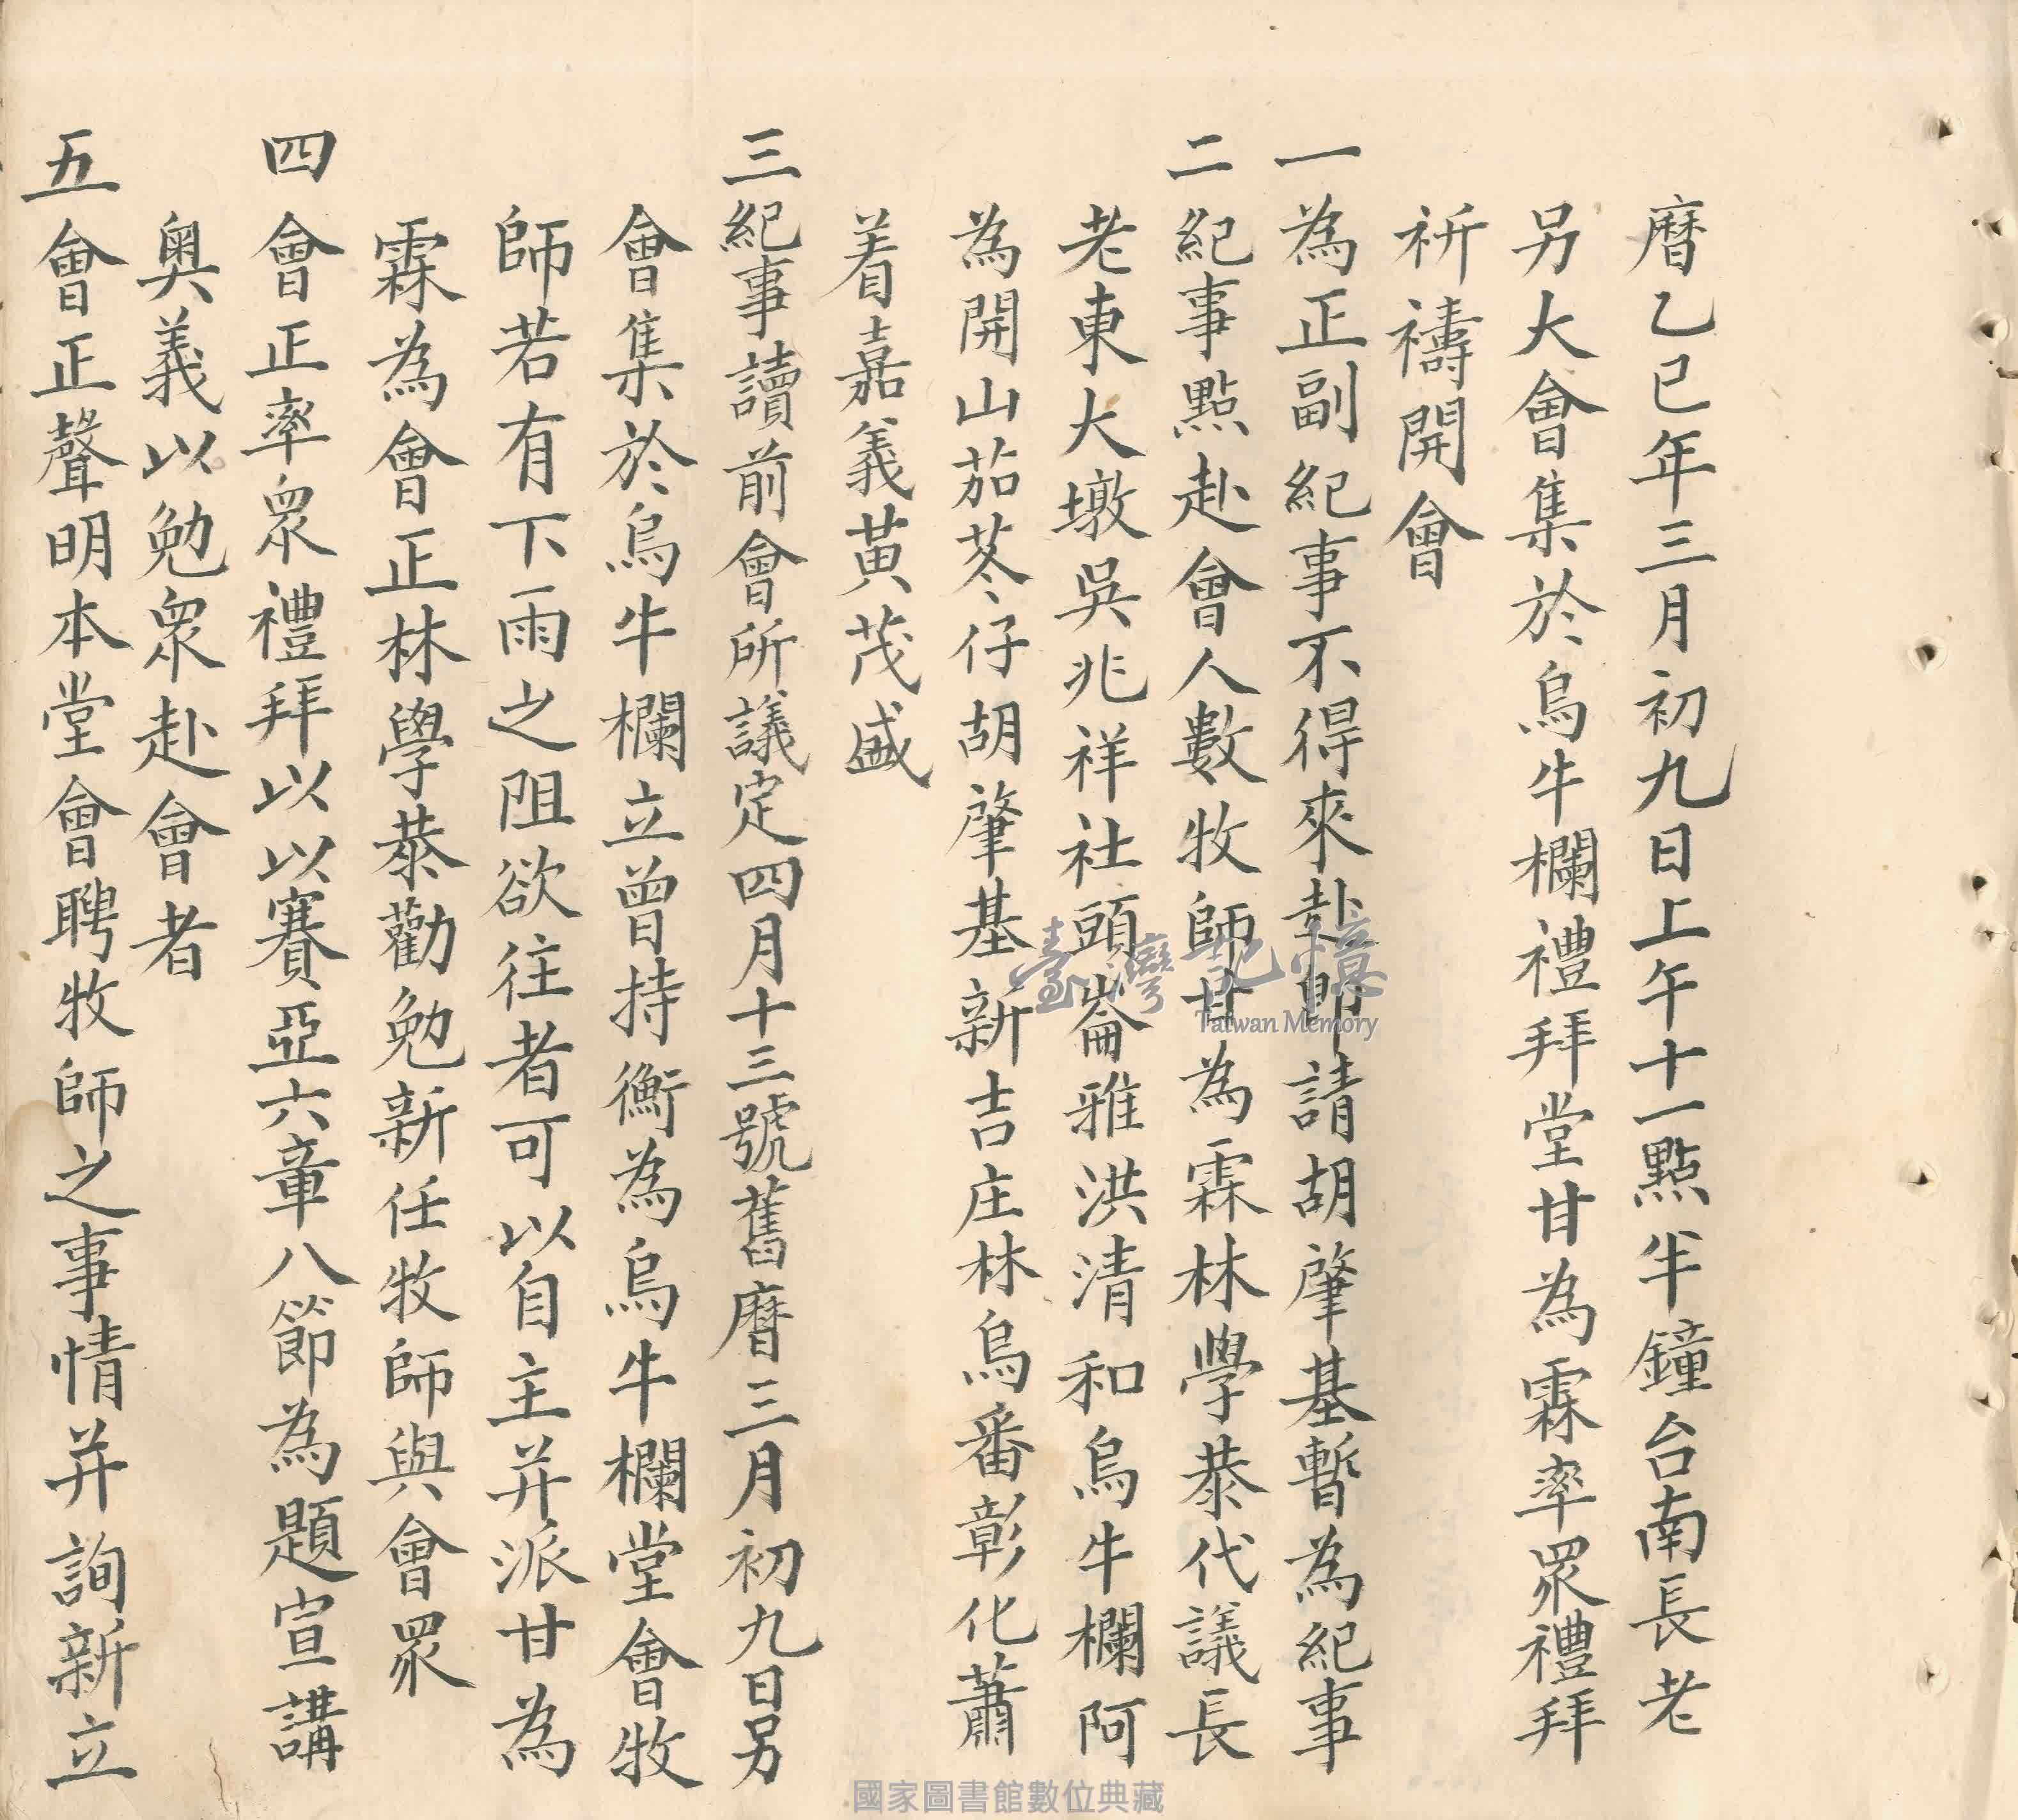 曆乙巳年三月初九日上午十一點半鐘台南長老
另大會集於烏牛欄禮拜堂甘為霖率眾禮拜
祈禱開會
一為正副紀事不得來赴即請胡肇基暫為紀事
二紀事點赴會人數牧師甘為霖林學恭代議長
老東大墩吳兆祥社頭崙雅洪清和烏牛欄阿
為開山茄苳仔胡肇基新吉庄林烏番彰化蕭
着嘉義黃茂盛
三紀事讀前會所議定四月十三號舊曆三月初九日另
會集於烏牛欄立曾持衡為烏牛欄堂會牧
師若有下雨之阻欲往者可以自主并派甘為
霖為會正林學恭勸勉新任牧師與會眾
四會正率眾禮拜以以賽亞六章八節為題宣講
奧義以勉眾赴會者
五會正聲明本堂會聘牧師之事情并詢新立
臺灣記憶
Taiwan Memory
國家圖書館數位典藏